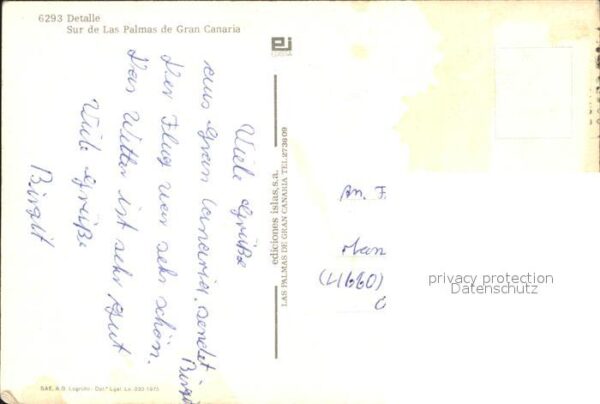 6293 Detalle
Sur de Las Palmas de Gran Canaria
ei
Viele Grüße
aus Gran Canaria sendet
Birgit
Der Flug war sehr schön.
Das Wetter ist sehr gut
Viele Grüße
Birgit
ediciones islas, s.a.
LAS PALMAS DE GRAN CANARIA TEL 273609
An F
(4660)
privacy protection
Datenschutz